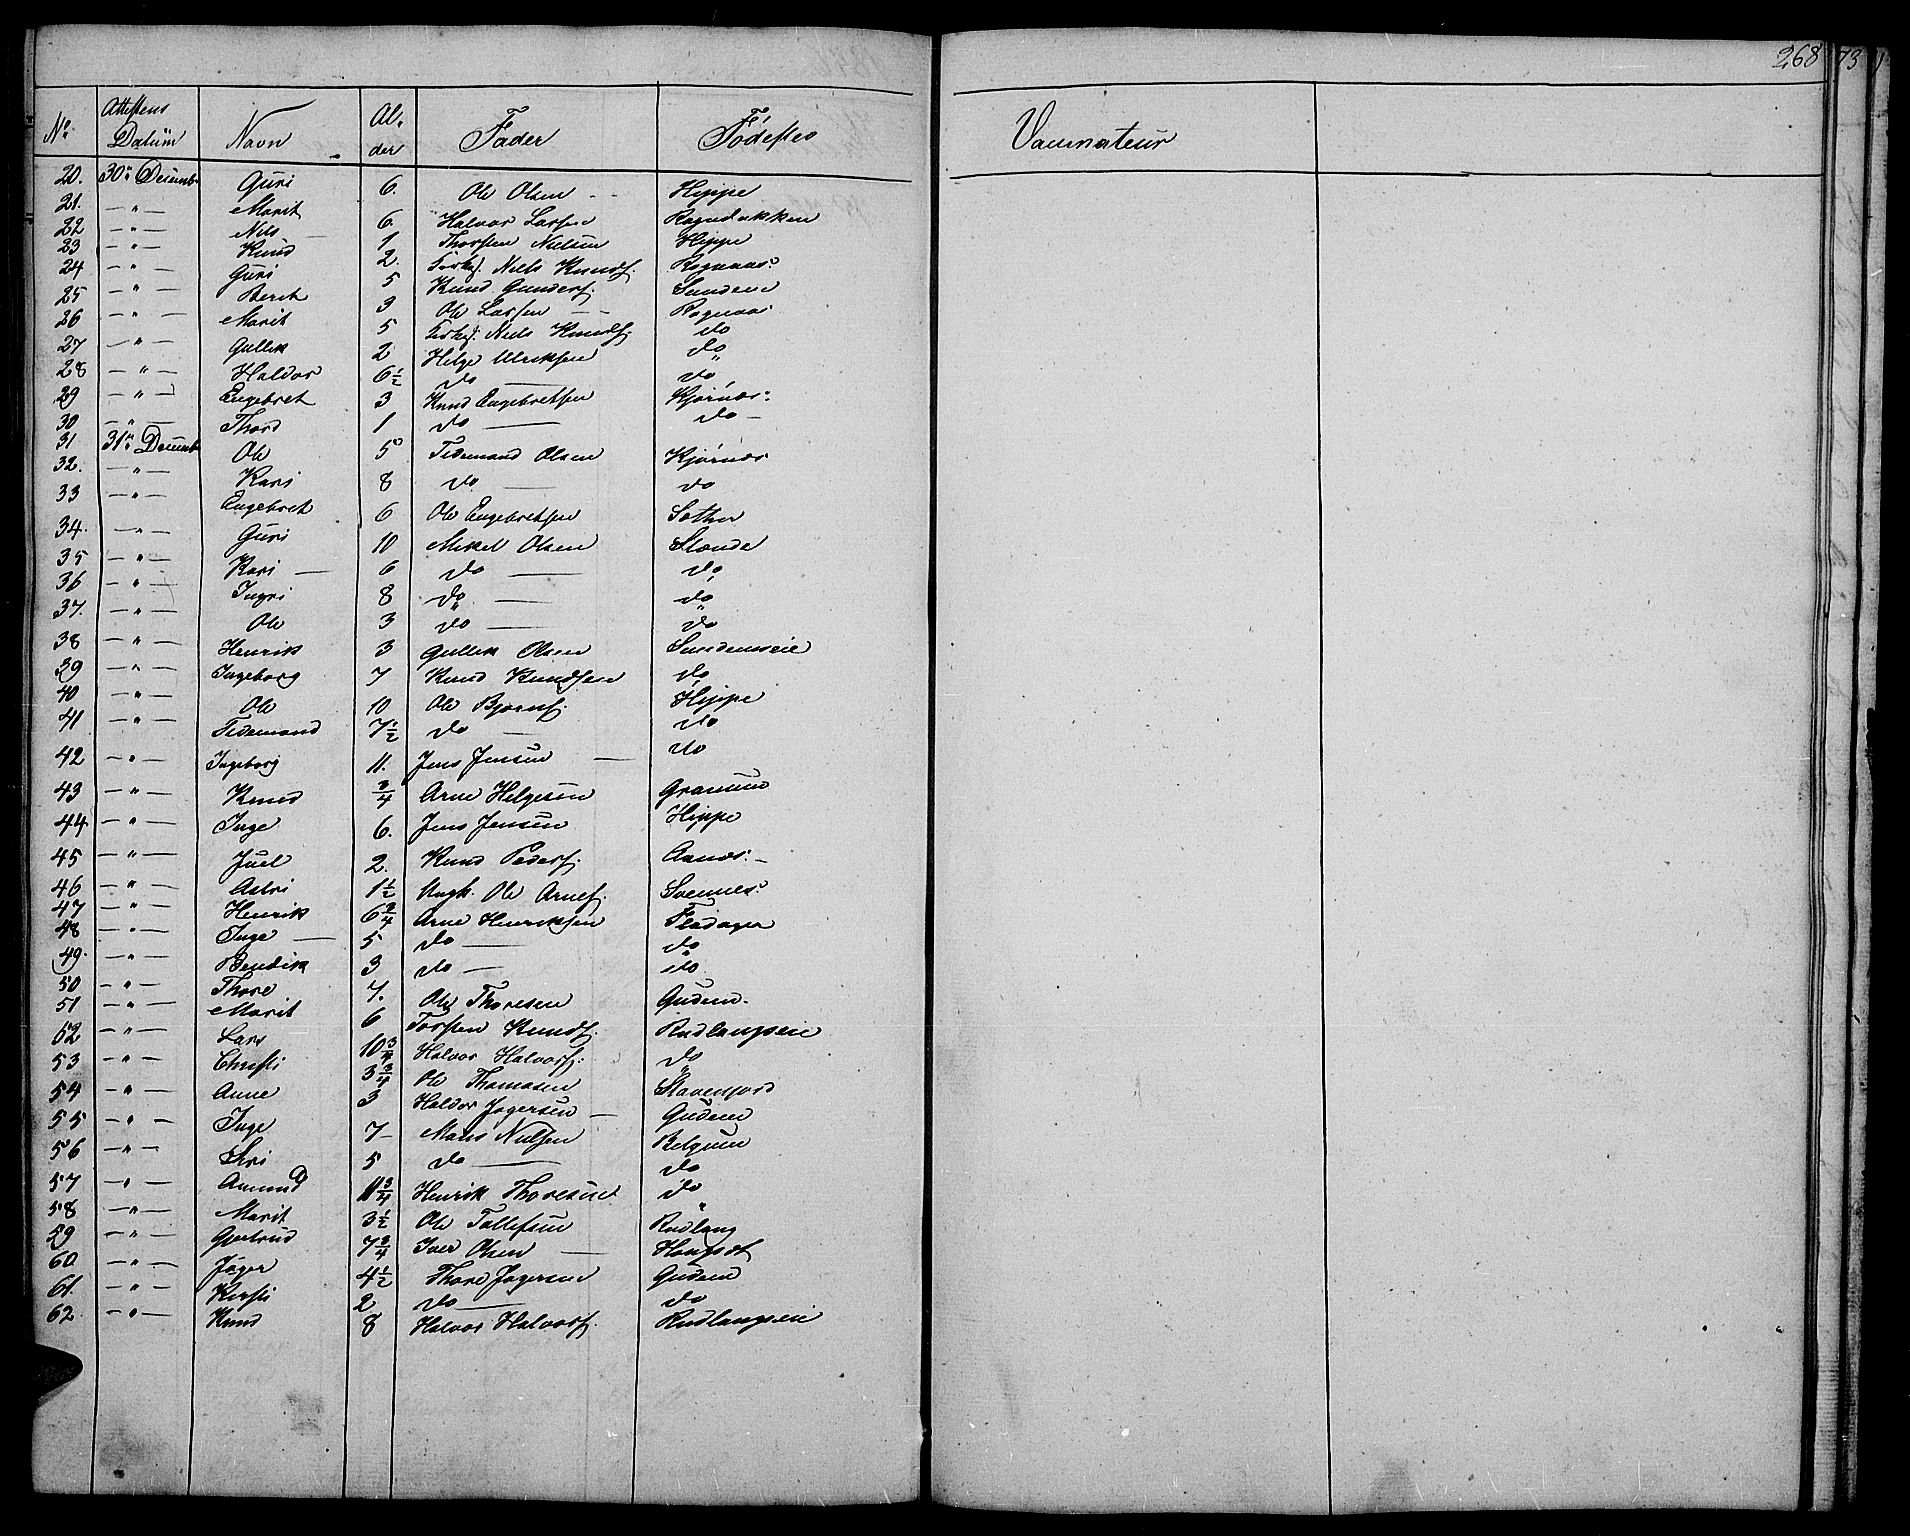 268 73
No. Attestens Datum Navn Alder Fader Fødested Vaccinateur
20. 30te Decemb. Guri 6. Ole Olsen Hippe
21. — " — Marit 6. Halvor Larsen Rognebakken
22 — " — Nils 1 Thorsten Nielsen Hippe
23 — " — Knud 2. Kirks. Niels Knuds. Rognaas
24 — " — Guri 5 Knud Gunders. Sundeie
25 — " — Berit 3 Ole Larsen Rognaas
26 — " — Marit 5 Kirks. Niels Knuds. do
27 — " — Gullik 2 Helge Ulriksen do
28 — " — Haldor 6½ do do
29 — " — Engebret 3 Knud Engebretsen Kjørnæs
30 — " — Thord 1 do do
31 31te Decemb. Ole 5 Tidemand Olsen Kjørnæs
32. — " — Kari 8 do do
33 — " — Engebret 6 Ole Engebretsen Sether
34. — " — Guri 10 Mikel Olsen Slænde
35 — " — Kari 6 do do
36 — " — Ingri 8 do do
37. — " — Ole 3 do do
38 — " — Henrik 3 Gullik Olsen Sundemseie
39 — " — Ingeborg 7 Knud Knudsen do
40 — " — Ole 10 Ole Bjørns. Hippe
41 — " — Tidemand 7½ do do
42 — " — Ingeborg 11. Jens Jensen do
43 — " — Knud ¾ Arne Helgesen
44 — " — Inge 6. Jens Jensen Hippe
45 — " — Juel 2. Knud Peders. Aanæs
46 — " — Astri 1½ Ungk. Ole Arnes. Svennes
47 — " — Henrik 6¾ Arne Henriksen Fladager
48 — " — Inge 5 do do
49. — " — Bendik 3 do do
50 — " — Thore 7. Ole Thoresen Gudem
51 — " — Marit 6 Torsten Knuds. Rudlangseie
52 — " — Lars 10¾ Halvor Halvors. do
53 — " — Christi 3¾ Ole Thomasen Ravenfjord
54 — " — Anne 3 Haldor Jøgersen Gudem
55 — " — Inge 7 Mons Nielsen Belgum
56 — " — 5 do do
57 — " — Amund 11¾ Henrik Thoresen do
58 — " — Marit 3½ Ole Tollefsen Rudlang
59 — " — Gjertrud 7¾ Iver Olsen Haugset
60 — " — Jøger 4½ Thore Jøgersen Gudem
61. — " — Kirsti 2 do do
62. — " — Knud 8 Halvor Halvors. Rudlangseie